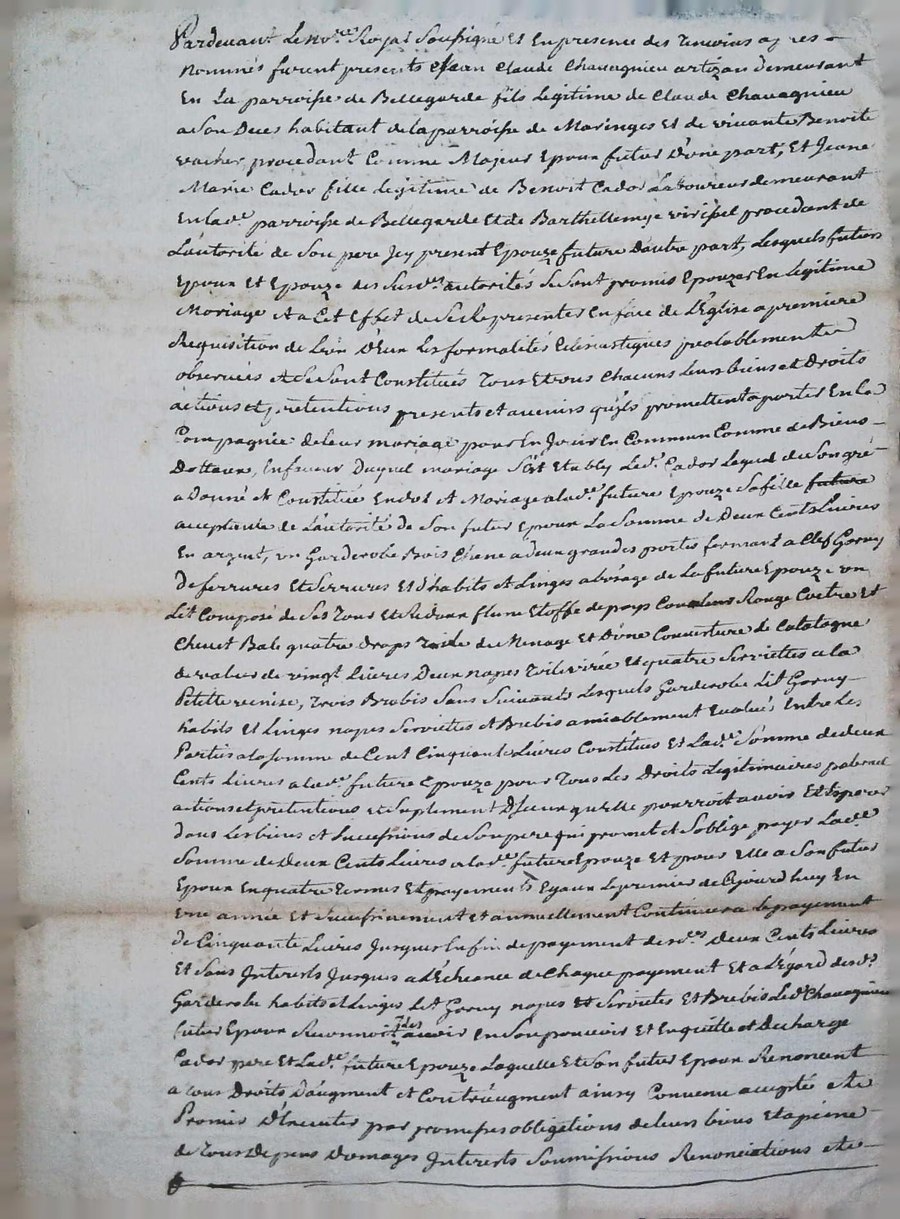 Pardevant Le no.re Royal Soussigné Et En presence des Temoins apres
Nommés furent presents Jean Claude Chavagnieu artizan demeurant
En La parroisse de Bellegarde fils Legitime de Claude Chavagnieu
a Son Deces habitant de la parroisse de Maringes Et de vivante Benoite
vacher procedant Comme Majeur Epoux futur D'une part, Et Jeane
Marie Cador fille Legitime de Benoit Cador Laboureur demeurant
En lad.e parroisse de Bellegarde Et de Barthellemye procedant de
L'autorité de Son pere Icy present Epouze future D'autre part, Lesquels futurs
Epoux Et Epouze des Susd.es autorités Se Sont promis Epouzer En Legitime
Mariage Et a Cet Effet de Se Representer En face de L'Eglise a premiere
Requisition de L'un D'Eux Les formalités Eclesiastiques prealablement
observées Et Se Sont Constitués Tous Et uns Chacuns Leurs biens et Droits
actions et pretentions presents et avenirs qu'ils promettent aporter En La
Compagnie de Leur mariage pour En Jouir En Commun Comme de Biens
Dottaux, En faveur Duquel mariage S'Est Etably Led.t Cador Lequel de Son gré
a Donné Et Constitué En dot Et Mariage a lad.e future Epouze Sa fille future
acceptante de L'autorité de Son futur Epoux La Somme de Deux Cents Livres
En argent, un Garderobe Bois Chene a deux grandes portes fermant a Clef Garny
De ferrures Et Serrures Et d'habits Et Linges a L'uzage de La future Epouze un
Lit Composé de Ses Tour Et Rideaux Etoffe de pays Couleur Rouge Coetre Et
Chevet Bale quatre draps Toile de Menage Et D'une Couverture de Catalogne
de valeur de vingt Livres Deux napes Et quatre Serviettes a la
Petitte venise, Trois Brebis Sans Suivants Lesquels Garderobe Lit Garny
habits Et Linges napes Serviettes Et Brebis amiablement Evalués Entre Les
Parties a la Somme de Cent Cinquante Livres Constitués Et Lad.e Somme de deux
Cents Livres a lad.e future Epouze pour Tous Les Droits Legitimaires paternel
actions et pretentions et Suplement D'Iceux qu'elle pourroit avoir Et Esperer
dans Les biens Et Successions de Son pere qui promet et S'oblige payer Lad.e
Somme de Deux Cents Livres a lad.e future Epouze Et pour Elle a Son futur
Epoux En quatre Termes Et payements Egaux Le premier de Cejourd'huy En
une année Et Successivement Et annuellement Continuera Le payement
de Cinquante Livres Jusques En fin de payement desd.es Deux Cents Livres
Et Sans Interets Jusques a L'Echeance de Chaque payement Et a L'Egard desd.s
Garderobe habits et Linges Lit Garny napes Et Serviettes Et Brebis Led.t Chavagnieu
futur Epoux Reconnoit avoir En Son pouvoir Et En quitte et Decharge
Cador pere Et Lad.e future Epouze Laquelle Et Son futur Epoux Renoncent
a tous Droits D'augment et Contr'augment ainsy Convenu accepté Et
Promis D'Executer par promesses obligations de Leurs biens Et a peine
de Tous Depens Domages Interets Soumissions Renonciations Et